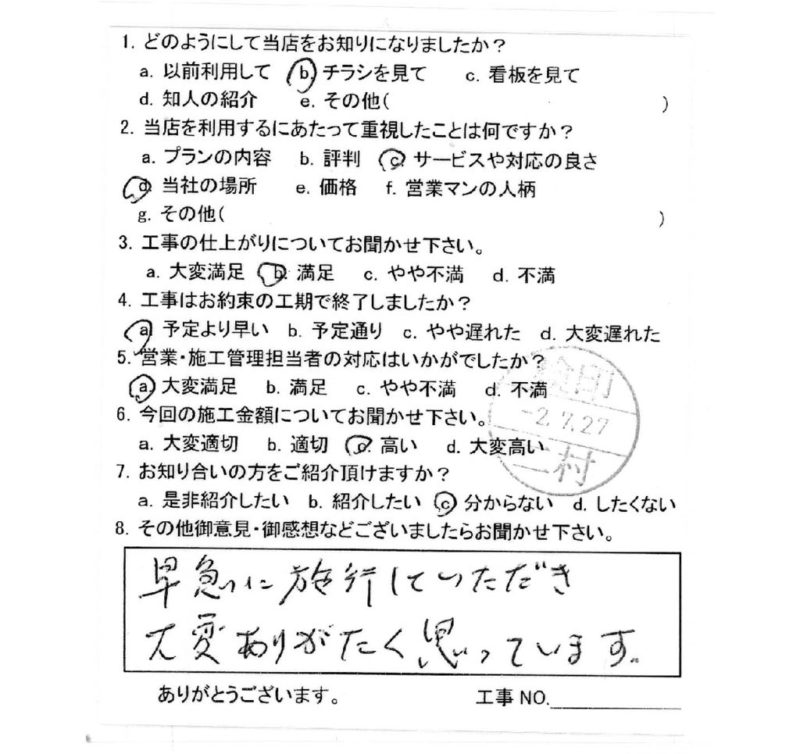 1. どのようにして当店をお知りになりましたか?
a. 以前利用して b. チラシを見て c. 看板を見て
d. 知人の紹介 e. その他( )
2. 当店を利用するにあたって重視したことは何ですか?
a. プランの内容 b. 評判 c. サービスや対応の良さ
d. 当社の場所 e. 価格 f. 営業マンの人柄
g. その他( )
3. 工事の仕上がりについてお聞かせ下さい。
a. 大変満足 b. 満足 c. やや不満 d. 不満
4. 工事はお約束の工期で終了しましたか?
a. 予定より早い b. 予定通り c. やや遅れた d. 大変遅れた
5. 営業・施工管理担当者の対応はいかがでしたか?
a. 大変満足 b. 満足 c. やや不満 d. 不満
6. 今回の施工金額についてお聞かせ下さい。
-2.7.27
a. 大変適切 b. 適切 c. 高い d. 大変高い
村
7. お知り合いの方をご紹介頂けますか?
a. 是非紹介したい b. 紹介したい c. 分からない d. したくない
8. その他御意見・御感想などございましたらお聞かせ下さい。
早急に施行していただき
大変ありがたく思っています。
ありがとうございます。 工事NO.